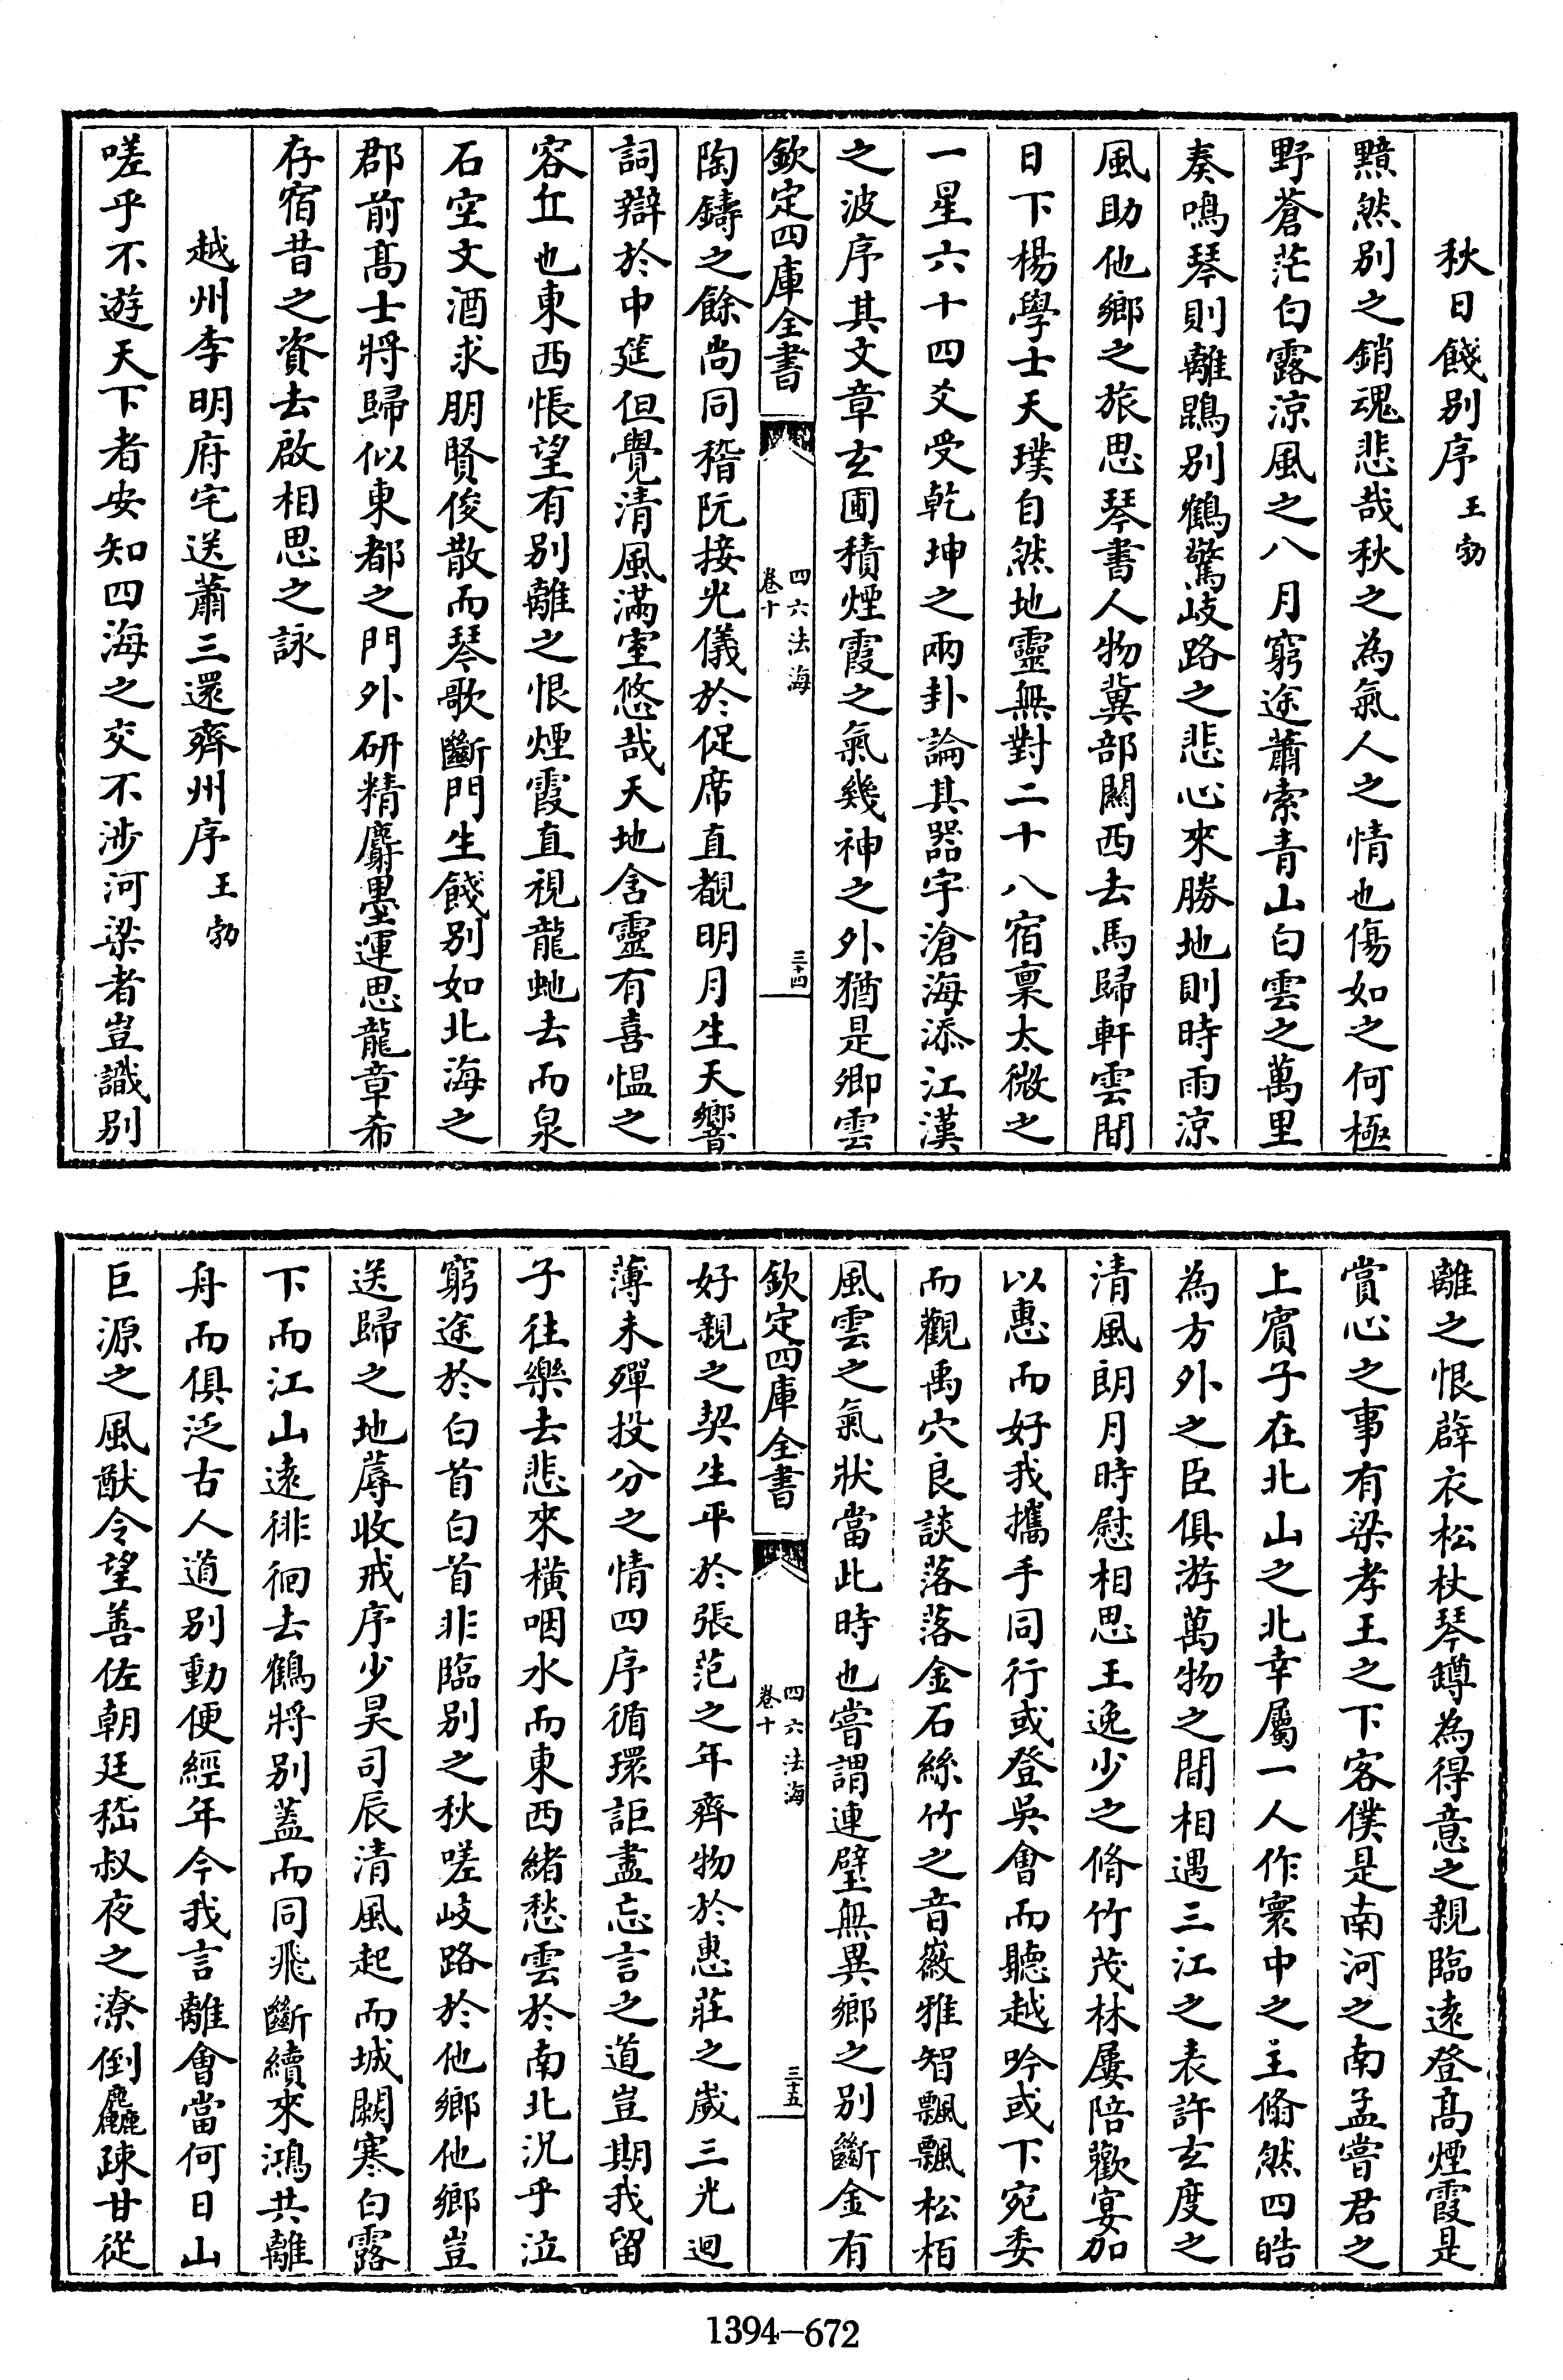 秋日餞別序 王勃
黯然別之銷魂悲哉秋之為氣人之情也傷如之何極
野蒼茫白露涼風之八月窮途蕭索青山白雲之萬里
奏鳴琴則離鵾別鶴驚岐路之悲心來勝地則時雨涼
風助他鄉之旅思琴書人物冀部關西去馬歸軒雲間
日下楊學士天璞自然地靈無對二十八宿稟太微之
一星六十四爻受乾坤之兩卦論其器宇滄海添江漢
之波序其文章玄圃積煙霞之氣幾神之外猶是卿雲
欽定四庫全書 四六法海 卷十 三十四
陶鑄之餘尚同嵇阮接光儀於促席直覩明月生天響
詞辯於中筵但覺清風滿室悠哉天地含靈有喜愠之
容丘也東西悵望有別離之恨煙霞直視龍虵去而泉
石空文酒求朋賢俊散而琴歌斷門生餞別如北海之
郡前髙士將歸似東都之門外研精麝墨運思龍章希
存宿昔之資去啟相思之詠
越州李明府宅送蕭三還齊州序 王勃
嗟乎不遊天下者安知四海之交不涉河梁者豈識別
離之恨薜衣松杖琴罇為得意之親臨遠登髙煙霞是
賞心之事有梁孝王之下客僕是南河之南孟嘗君之
上賓子在北山之北幸屬一人作寰中之主翛然四皓
為方外之臣俱游萬物之間相遇三江之表許玄度之
清風朗月時慰相思王逸少之脩竹茂林屢陪歡宴加
以惠而好我攜手同行或登吳會而聽越吟或下宛委
而觀禹穴良談落落金石絲竹之音徽雅智飄飄松栢
風雲之氣狀當此時也嘗謂連璧無異鄉之別斷金有
欽定四庫全書 四六法海 卷十 三十五
好親之契生平於張范之年齊物於惠莊之歲三光迴
薄未殫投分之情四序循環詎盡忘言之道豈期我留
子往樂去悲來橫咽水而東西緒愁雲於南北況乎泣
窮途於白首白首非臨別之秋嗟岐路於他鄉他鄉豈
送歸之地蓐收戒序少昊司辰清風起而城闕寒白露
下而江山遠徘徊去鶴將別蓋而同飛斷續來鴻共離
舟而俱泛古人道別動便經年今我言離會當何日山
巨源之風猷令望善佐朝廷嵇叔夜之潦倒麤疎甘從
1394-672